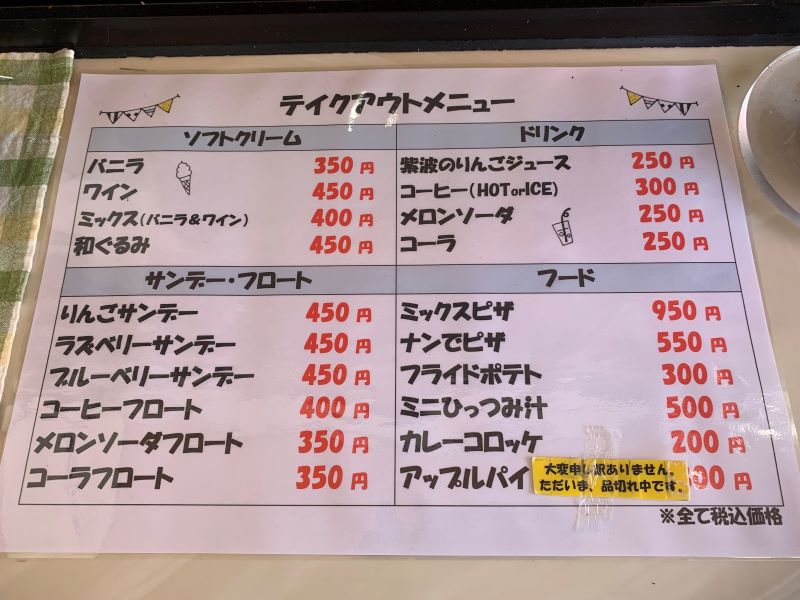 テイクアウトメニュー
ソフトクリーム
バニラ 350円
ワイン 450円
ミックス(バニラ&ワイン) 400円
和ぐるみ 450円
ドリンク
紫波のりんごジュース 250円
コーヒー(HOTorICE) 300円
メロンソーダ 250円
コーラ 250円
サンデー・フロート
りんごサンデー 450円
ラズベリーサンデー 450円
ブルーベリーサンデー 450円
コーヒーフロート 400円
メロンソーダフロート 350円
コーラフロート 350円
フード
ミックスピザ 950円
ナンでピザ 550円
フライドポテト 300円
ミニひっつみ汁 500円
カレーコロッケ 200円
アップルパイ 00円
大変申し訳ありません。
ただいま、品切れ中です。
※全て税込価格